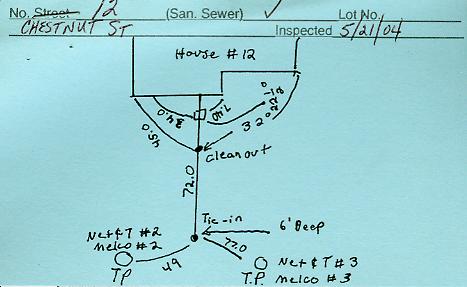 No. Street 12 (San. Sewer) ✓ Lot No.
CHESTNUT ST Inspected 5/21/04
House #12
34.0
7.40
45.0
32°
Cleanout
72.0
Tie-in
6' Deep
Net & T #2
Melco #2
TP
49
77.0
Net & T #3
T.P. Melco #3